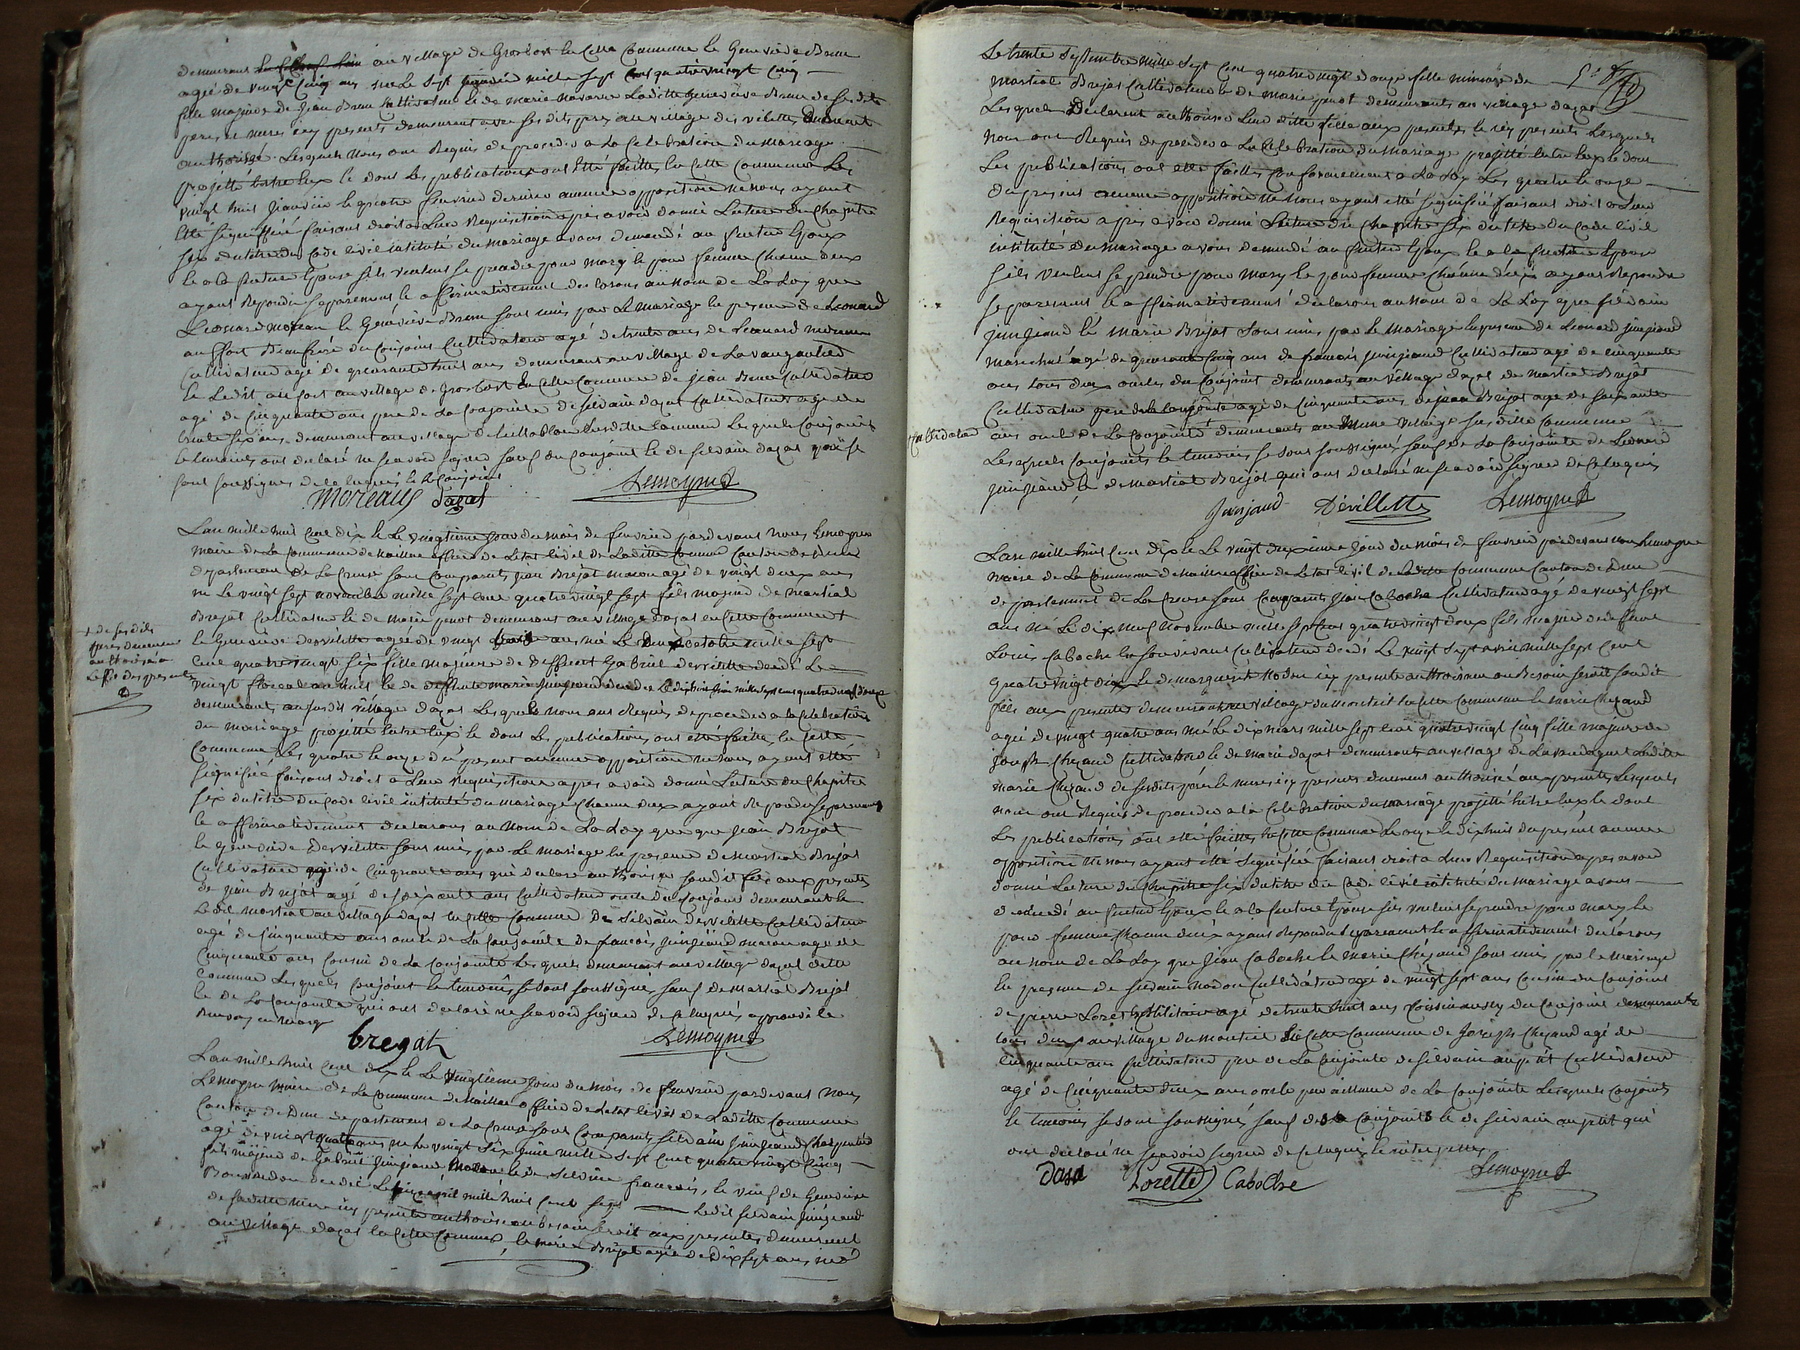 demeurant au village de Grosbost en Cette Commune et Geneviève Brun
agée de vingt Cinq ans née le Sept mille Sept Cent quatrevingt Cinq
fille majeure de Jean Brun Cultivateur et de marie navarre Laditte Geneviève Brun de sesdits
pere et mere icy presents demeurant avec sesdits pere au village des
authorisée. Lesquels Nous ont Requis de proceder a La Celebration du Mariage
projetté Entre Eux et dont Les publications ont Etté faittes En Cette Commune Les
vingt huit Janvier et quatre fevrier dernier aucune opposition ne nous ayant
Etté Signiffiée faisant droit a Leur Requisition apres avoir donné Lecture du Chapitre
Six du titre du Code Civil intitulé du Mariage avons demandé au futur Epoux
et a la future Epouse sils veulent se prendre pour Mary et pour femme Chacun deux
ayant Repondu separement et affirmativement declarons au Nom de La Loy que
Leonard moreau et Geneviève Brun Sont unis par Le Mariage En presence de Leonard
du Conjoint Cultivateur agé de trente ans de Leonard
Cultivateur agé de quarante huit ans demeurant au village de Lavaugautier
et Ledit au village de Grosbost En Cette Commune de Jean Brun Cultivateur
agé de Cinquante ans pere de La Conjointe de Silvain dayat Cultivateur agé de
trente Six ans demeurant au village de Susditte Commune Lesquels Conjoints
et temoins ont declaré ne Scavoir Signer Sauf du Conjoint et de Silvain dayat qui se
Sont Soussignes de ce Enquis
Moreaud dayat Lemoyne
Lan mille huit Cent dix et Le vingtieme jour du mois de fevrier pardevant Nous Lemoyne
maire de La Commune de Naillat officier de Letat Civil de Laditte Commune Canton de Dun
departement de La Creuse Sont Comparus Jean Brejat macon agé de vingt deux ans
né Le vingt Sept novembre mille Sept Cent quatrevingt Sept fils majeur de Martial
Brejat Cultivateur et de Marie penot demeurant au village dayat en Cette Commune
et Geneviève Dervillette agée de vingt ans née Le octobre mille Sept
Cent quatrevingt Six fille majeure de deffunt Gabriel dervillette decedé Le
vingt floreal an huit et de deffunte marie Junjaud decedée Le mille Sept Cent quatrevingt douze
demeurant au Susdit village dayat Lesquels Nous ont Requis de proceder a la Celebration
du Mariage projetté Entre Eux et dont Les publications ont etté faittes En Cette
Commune Les quatre et onze du present aucune opposition ne Nous ayant etté
Signifiée faisant droit a Leur Requisition apres avoir donné Lecture du Chapitre
Six du titre du Code Civil intitulé du Mariage Chacun deux ayant Repondu Separement
et affirmativement declarons au Nom de La Loy que que Jean Brejat
et Geneviève Dervillette Sont unis par Le Mariage En presence de Martial Brejat
Cultivateur agé de Cinquante ans qui declare authoriser Sondit fils aux presentes
de Jean Brejat agé de Soixante ans Cultivateur oncle du Conjoint demeurant
Ledit Martial au village dayat En Cette Commune De Silvain Dervillette Cultivateur
agé de Cinquante ans oncle de La Conjointe de francois Junjaud macon agé de
Cinquante ans Cousin de La Conjointe Lesquels demeurant au village dayat dite
Commune Lesquels Conjoints et temoins Se Sont Soussignés Sauf de Martial Brejat
et de La Conjointe qui ont declaré ne Scavoir Signer de ce Enquis approuvé le
Renvoy en marge
+ de sesdits
authorisé a
Leffet des presentes
bregat Lemoyne
Lan mille huit Cent dix et Le vingtieme jour du mois de fevrier pardevant Nous
Lemoyne Maire de La Commune de Naillat officier de Letat Civil de Laditte Commune
Canton de Dun departement de La Creuse Sont Comparus Silvain Junjaud Charpentier
agé de vingt quatre ans né Le vingt Six mille Sept Cent quatrevingt Cinq
fils majeur de Gabriel Junjaud et de Silvine francois, et veuf de Geneviève
decedée Le avril mille huit Cent Sept Ledit Silvain Junjaud
de Saditte Mere icy presente authorisé au besoin Seroit aux presentes demeurant
au village dayat En Cette Commune, et Marie Brejat agée de Dix Sept ans née
Le trente Septembre mille Sept Cent quatre vingt douze fille mineure de
Martial Brejat Cultivateur et de marie penot demeurants au village dayat
Lesquels Declarent authoriser Leur ditte fille aux presentes et icy presents Lesquels
Nous ont Requis de proceder a La Celebration du Mariage projetté Entre Eux et dont
Les publications ont etté faittes Conformement a La Loy Les quatre et onze
du present aucune opposition ne Nous ayant etté Signifiée faisant droit a Leur
Requisition apres avoir donné Lecture du Chapitre Six du titre du Code Civil
intitulé du Mariage avons demandé au futur Epoux et a la future Epouse
Sils veulent Se prendre pour Mary et pour femme Chacun deux ayant Repondu
Separement et affirmativement declarons au Nom de La Loy que Silvain
Junjaud et Marie Brejat Sont unis par Le Mariage En presence de Leonard Junjaud
marechal agé de quarante Cinq ans de francois Junjaud Cultivateur agé de Cinquante
ans tous deux oncles du Conjoint demeurants au village dayat de Martial Brejat
Cultivateur pere de la Conjointe agé de Cinquante ans de Jean Brejat agé de Soixante
ans oncle de La Conjointe demeurants au Meme village Susditte Commune
+ Cultivateur
Lesquels Conjoints et temoins Se Sont Soussignés Sauf de La Conjointe de Leonard
Junjaud et de Martial Brejat qui ont declaré ne Scavoir Signer de ce Enquis
Junjaud Dévillette Lemoyne
Lan mille huit Cent dix et Le vingt deuxieme jour du mois de fevrier pardevant nous Lemoyne
Maire de La Commune de Naillat officier de Letat Civil de Laditte Commune Canton de Dun
departement de La Creuse Sont Comparus Jean Caboche Cultivateur agé de vingt Sept
ans né Le dix neuf Novembre mille Sept Cent quatre vingt deux fils majeur de deffunt
Louis Caboche En Son vivant Cultivateur decedé Le vingt Sept avril mille Sept Cent
quatre vingt dix et de marguerite Nadou icy presente authorisant au Besoin Seroit Sondit
fils aux presentes demeurants au village du Monteil En Cette Commune et Marie Chezaud
agée de vingt quatre ans née Le dix mars mille Sept Cent quatre vingt Cinq fille majeure de
Joseph Chezaud Cultivateur et de Marie dayat demeurants au village de Laditte
Marie Chezaud de Sesdits pere et mere icy presents dument authorisée aux presentes Lesquels
Nous ont Requis de proceder a la Celebration du mariage projetté Entre Eux et dont
Les publications ont etté faittes En Cette Commune Le onze et dix huit du present aucune
opposition ne Nous ayant etté Signifiée faisant droit a Leur Requisition apres avoir
donné Lecture du Chapitre Six du titre du Code Civil intitulé du Mariage avons
demandé au futur Epoux et a la future Epouse Sils veulent Se prendre pour Mary et
pour femme Chacun deux ayant Repondu Separement et affirmativement declarons
au Nom de La Loy que Jean Caboche et Marie Chezaud Sont unis par Le Mariage
En presence de Silvain Nadou Cultivateur agé de vingt Sept ans Cousin du Conjoint
de pierre Loret Militaire agé de trente huit ans du Conjoint demeurants
tous deux au village du Monteil En Cette Commune de Joseph Chezaud agé de
Cinquante ans Cultivateur pere de La Conjointe de Silvain aupetit Cultivateur
agé de Cinquante deux ans oncle par alliance de La Conjointe Lesquels Conjoints
et temoins Se Sont Soussignés Sauf de la Conjointe et de Silvain aupetit qui
ont declaré ne Scavoir Signer de ce Enquis
Lorette Caboche Lemoyne